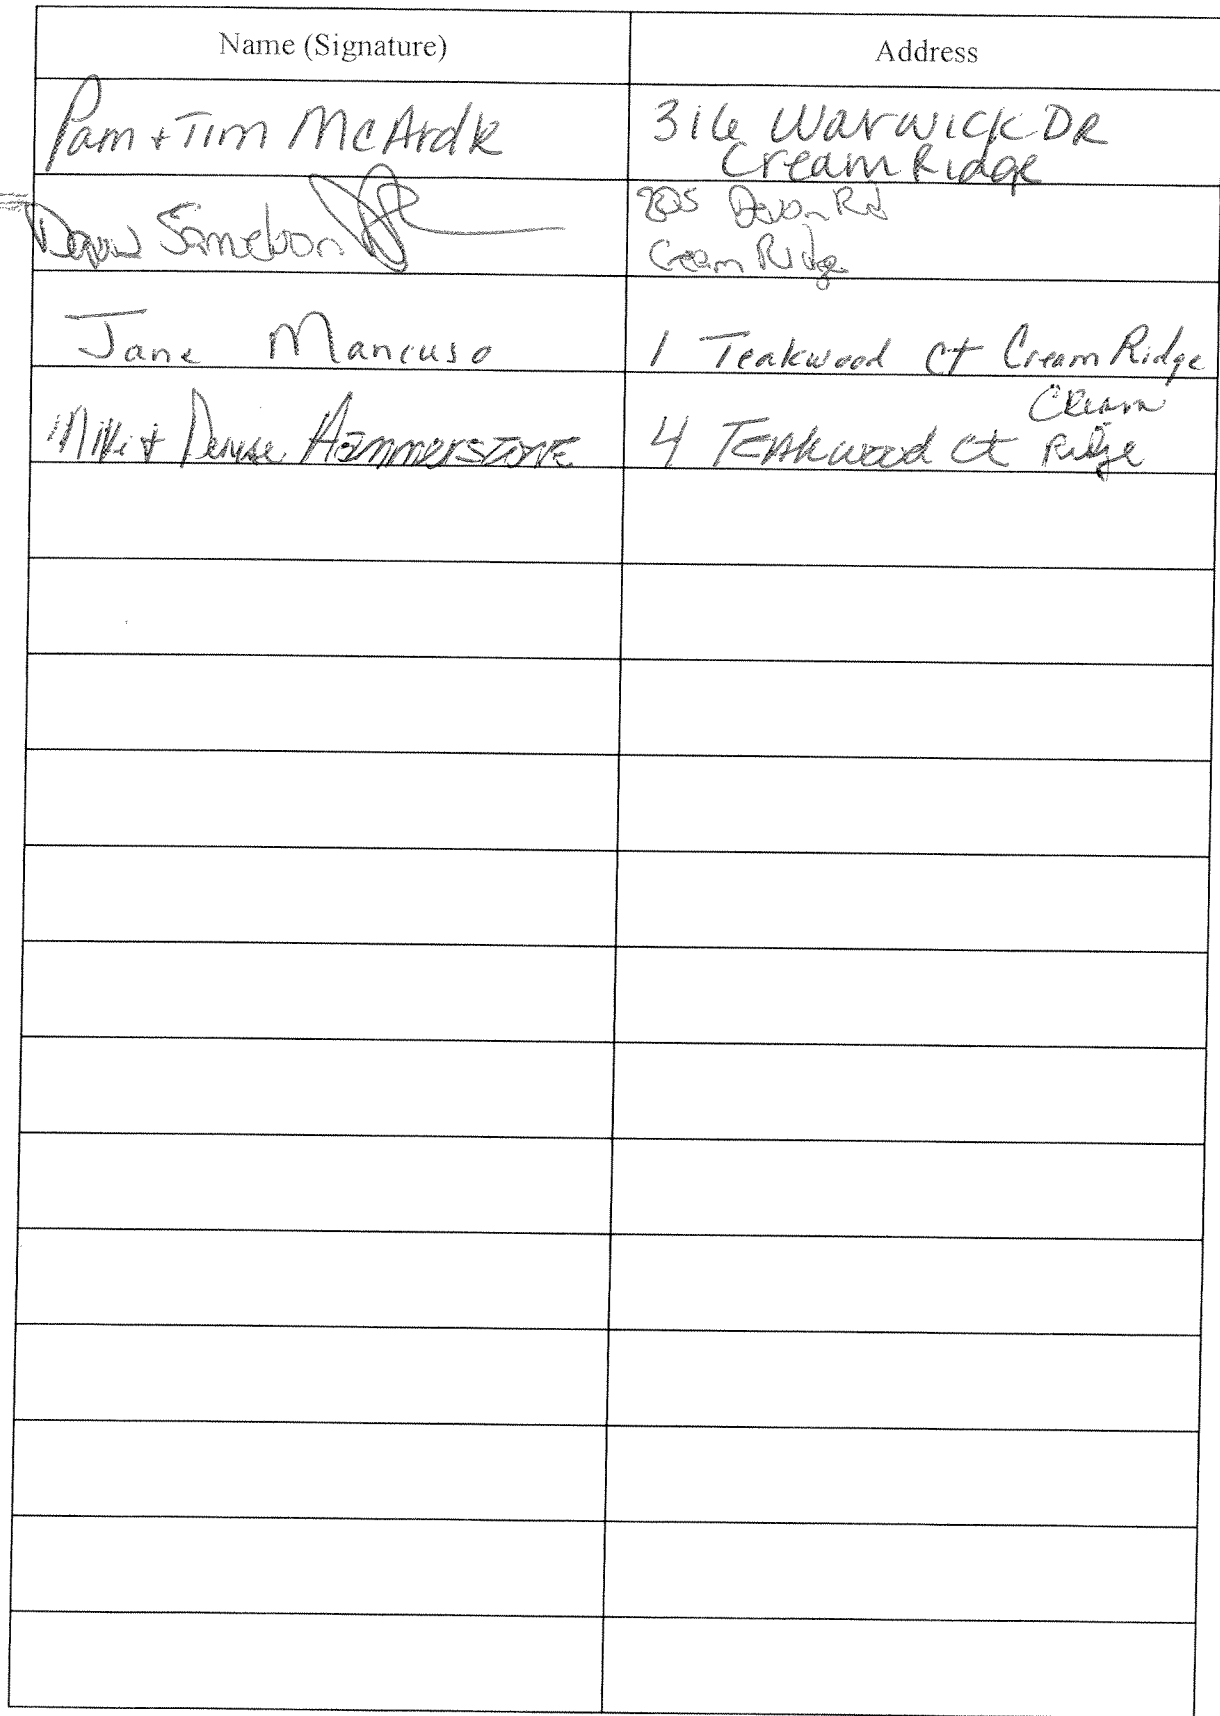 Name (Signature) Address
Pam + Tim McArdle 316 Warwick DR
Cream Ridge
Samelson Rd
Cream Ridge
Jane Mancuso 1 Teakwood Ct Cream Ridge
Mike + Denise HammerSTONE 4 TEAkwood Ct Cream
Ridge